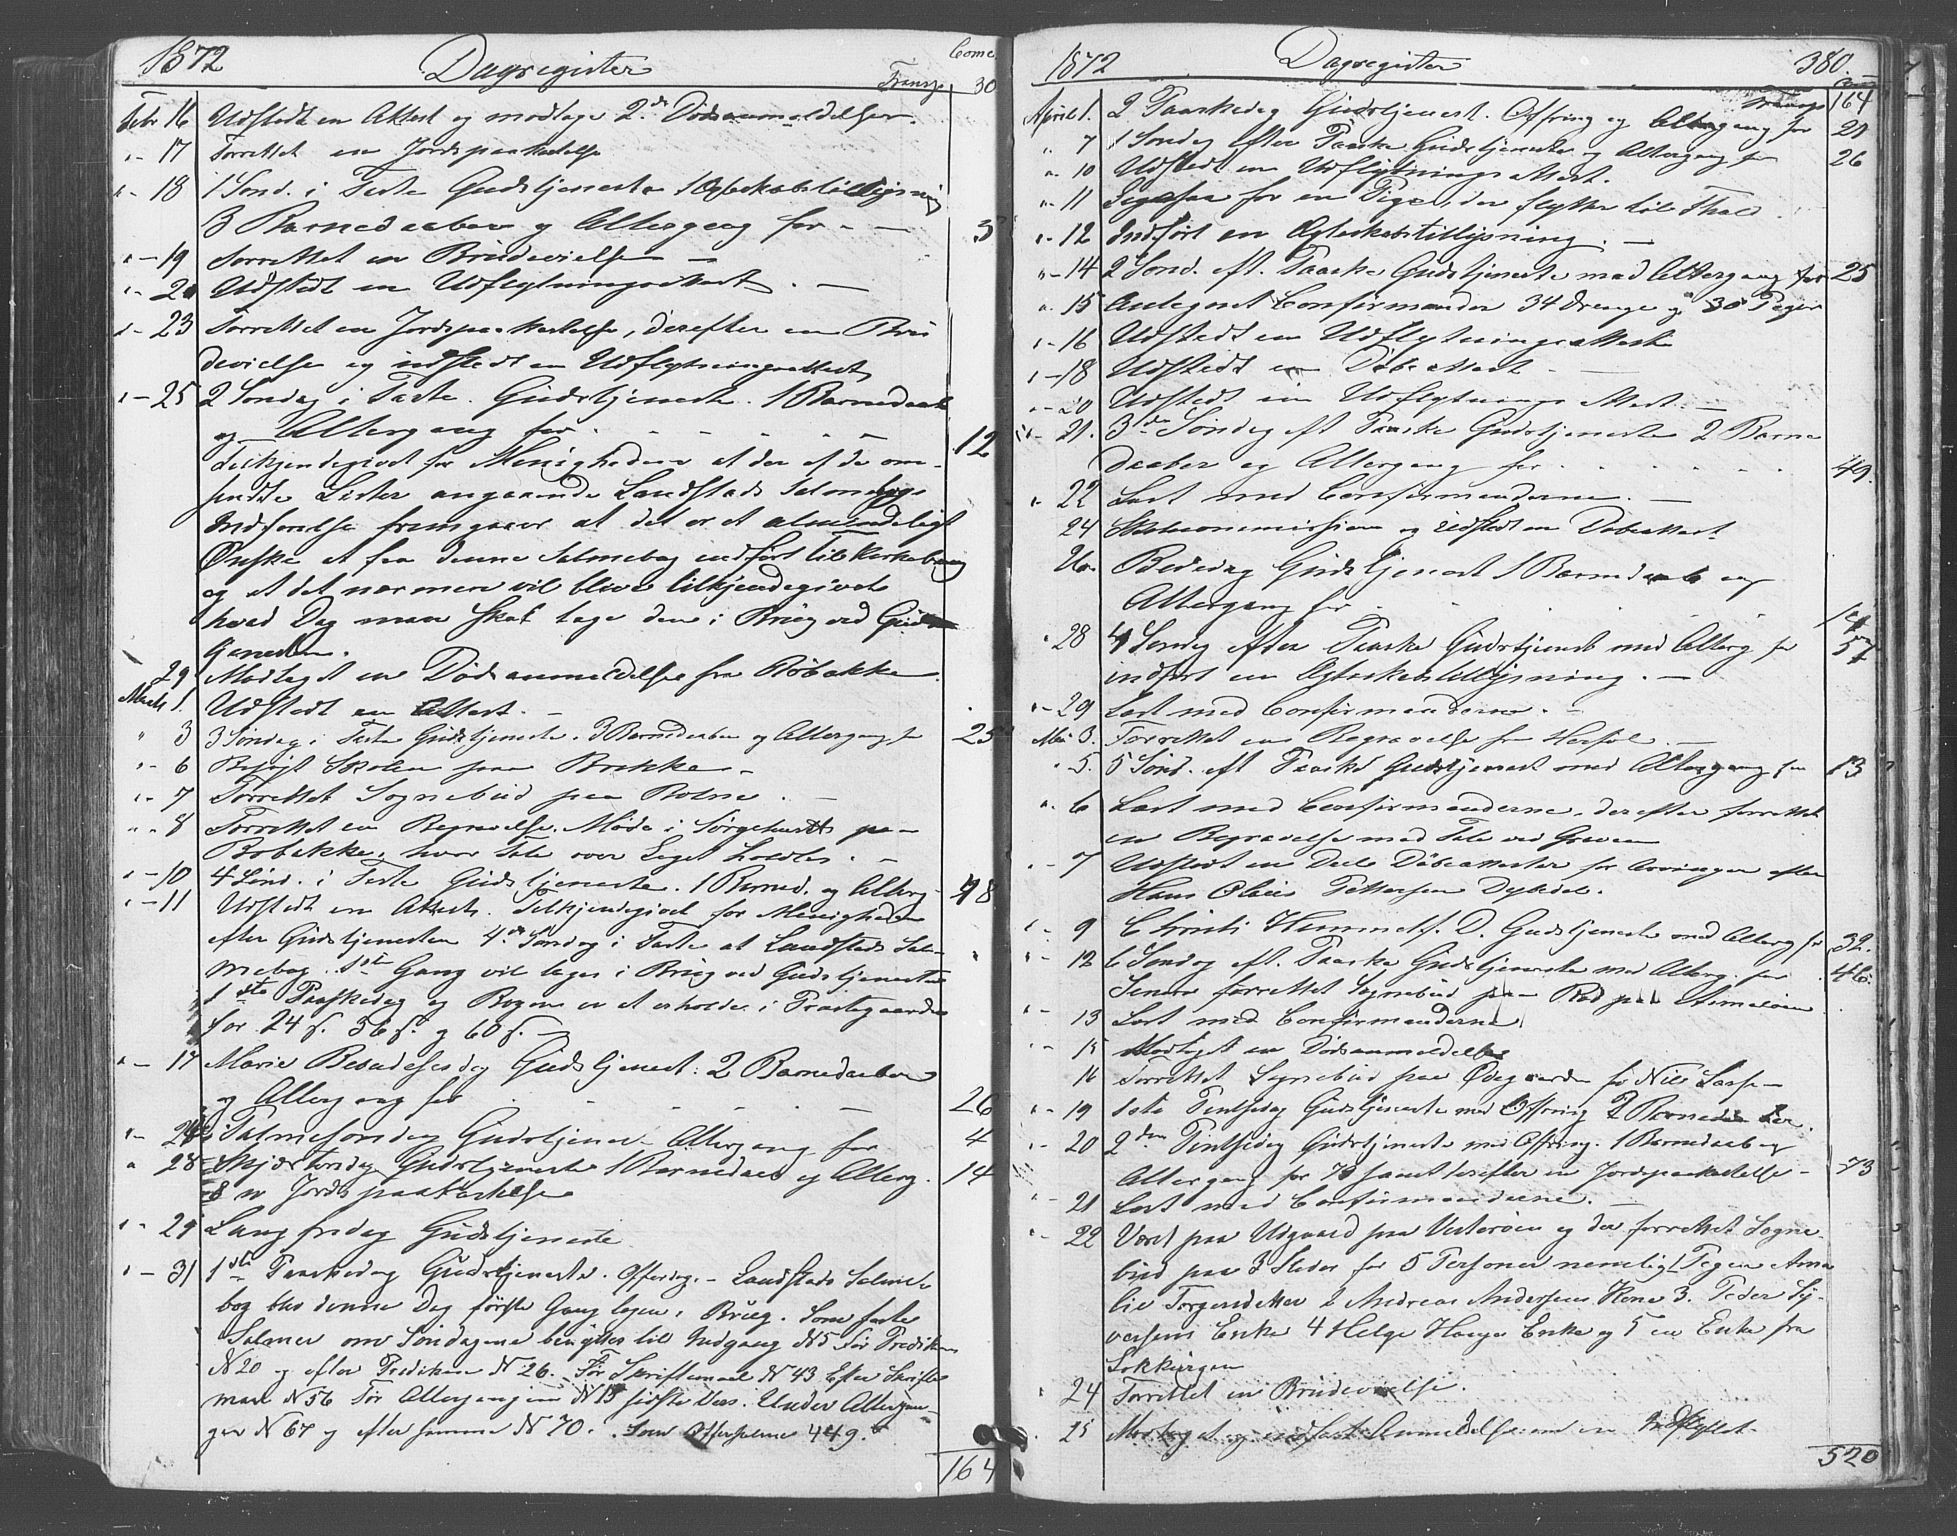 1872 Dagregister Come
Transp 30
Febr 16 Udstedt en Attest og modtoge 2de Dødsanmeldelser.
" - 17 Forrettet en Jordspaakastelse
" - 18 1 Sønd. i Faste Gudstjeneste 1 Ægteskabstillysning
3 Barnedaaber og Altergang for - - 5
" - 19 forrettet en Brudevielse -
" - 20 Udstedt en Udflytningsattest . -
" - 23 Forrettet en Jordspaakastelse, derefter en Bru
devielse og udstedt en Udflytningsattest
" - 25 2 Søndag i Faste. Gudstjeneste. 1 Barnedaab
og Altergang for . - - - - 12
tilkjendegivet for Menigheden at der af de om-
sendte Lister angaaende Landstads Salmebogs
Indførelse fremgaaer at det er et almindeligt
Ønske at faa denne Salmebog indført til Kirkebrug
og at det nærmere vil blive tilkjendegivet
hvad Dag man skal tage den i Brug ved Guds
tjenesten.
29 Modtaget en Dødsanmeldelse fra Robakke.
Marts 1. Udstedt en Attest. -
" 3 3 Søndag i Faste Gudstjeneste. 3 Barnedaaber og Altergang for 25
" - 6 Besøgt Skolen paa Brekke -
" - 7 Forrettet Sognebud paa . -
" - 8 Forrettet en Begravelse. Møde i Sørgehuset paa
Robakke, hvor Tale over Liget holdtes . -
" - 10 4 Sønd. i Faste Gudstjeneste. 1 Barned. og Alterg - 48
" - 11 Udstedt en Attest. Tilkjendegivet for Menigheden
efter Gudstjenesten 4de Søndag i Faste at Landstads Sal-
mebog 1ste Gang vil tages i Brug ved Gudstjenesten
1ste Paaskedag og Bogen er at erholde i Præstegaarden
for 24 s. 36 s. og 60 s. -
" - 17 Marie Besøgelsesdag Gudstjenest: 2 Barnedaaber
og Altergang for . - - - 26
" - 24 Palmesøndag Gudstjenest - Altergang for 4
" 28 Skjærtorsdag Gudstjeneste 1 Barnedaab og Alterg. 14
& en Jordspaakastelse
" - 29 Langfredag Gudstjeneste
" - 31 1ste Paaskedag Gudstjeneste. Offerdag. - Landstads Salme
bog blev denne Dag første Gang tagen i Brug. Som faste
Salmer om Søndagene benyttes til Indgang N 5 Før Prediken
N 20 og efter Prediken N 26. Før Skriftemaal N 43 Efter Skrifte
maal N 56 Før Altergangen N 15 sidste Vers. Under Altergan-
gen N 67 og efter samme N 70. Som Offersalme 449.
164
1872 Dagregister 380.
Transp 164
April 1. 2 Paaskedag Gudstjenest. Offring og Altergang for 21
" 7 1 Søndag efter Paaske Gudstjeneste og Altergang for 26
" 10 Udstedt en Udflytnings Attest.
" 11 for en Pige, der flytter til
" - 12 Indført en Ægteskabstillysning. -
" - 14 2 Sønd. eft. Paaske Gudstjeneste med Altergang for 25
" 15 Antegnet Confirmander 34 Drenge og 30 Piger
" - 16 Udstedt en Udflytningsattest
" - 18 Udstedt en Døbeattest - -
" - 20 Udstedt en Udflytnings Attest -
" - 21. 3de Søndag eft Paaske Gudstjeneste 2 Barne
daaber og Altergang for . . . . . . 49.
" 22 Læst med Confirmanderne. -
24 Skolecommission og udstedt en Døbeattest
Bededag Gudstjenest 1 Barnedaab og
Altergang for . . . . . 14
" 28 4 Søndag efter Paaske Gudstjenest med Alterg for 57
indført en Ægteskabstillysning. -
" - 29 Læst med Confirmanderne. -
Mai 3. Forrettet en Begravelse fra -
" 5. 5 Sønd. eft Paaske Gudstjenest med Altergang for 13
" 6 Læst med Confirmanderne, derefter forrettet
en Begravelse med Tale ved Graven
" - 7 Udstedt en Deel Døbeattester for Arvingen efter
Hans Olaus Pettersen
" - 9 Christi Himmelf. D. Gudstjeneste med Alterg for 32.
" - 12 6 Søndag eft. Paaske Gudstjeneste med Alterg. for 46.
Senere forrettet Sognebud paa Rød paa
" - 13 Læst med Confirmanderne
" - 15 Modtaget en Dødsanmeldelse
16 Forrettet Sognebud paa Ødegaarden for Nils
" - 19 1ste Pintsedag Gudstjeneste med Offring 2 Barnedaaber.
" - 20 2den Pintsedag Gudstjeneste med Offring. 1 Barnedaab og
Altergang for 73 samt derefter en Jordspaakastelse - 73
" - 21 Læst med Confirmanderne. -
" - 22 Været paa Udgaard paa Vesterøen og der forrettet Sogne-
bud paa 3 Steder for 5 Personer nemlig 1 Pigen Ama
lie Torgersdatter 2 Andreas Andersens Kone 3. Peder Sy-
versens Enke 4 Helge Enke og 5 en Enke fra

" 24 Forrettet en Brudevielse.
" 25 Modtaget og indført Anmeldelse om en Indflyttet.
520